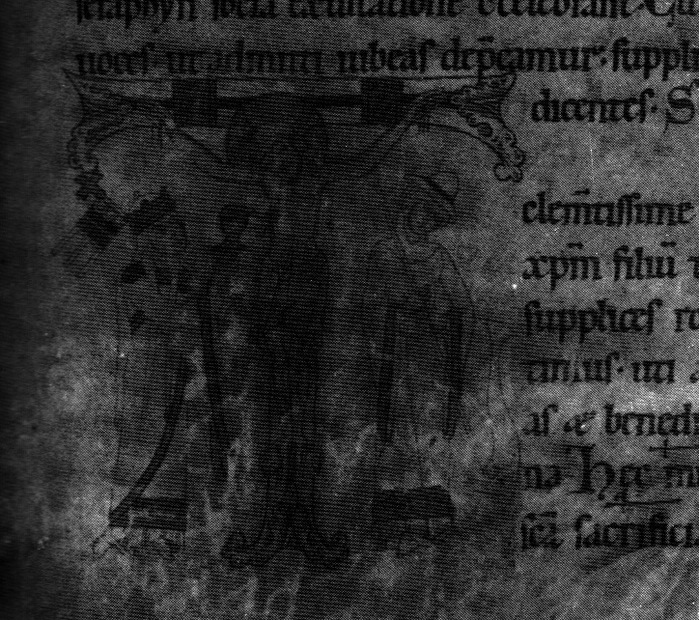 seraphyn socia exultatione
uoces ut admitti iubeas dep̄camur· suppli
dicentes· S
clem̄tissime
xp̄m filiū
supplices ro
timus· uti
as & bened
na Hęc mu
scā sacrifici